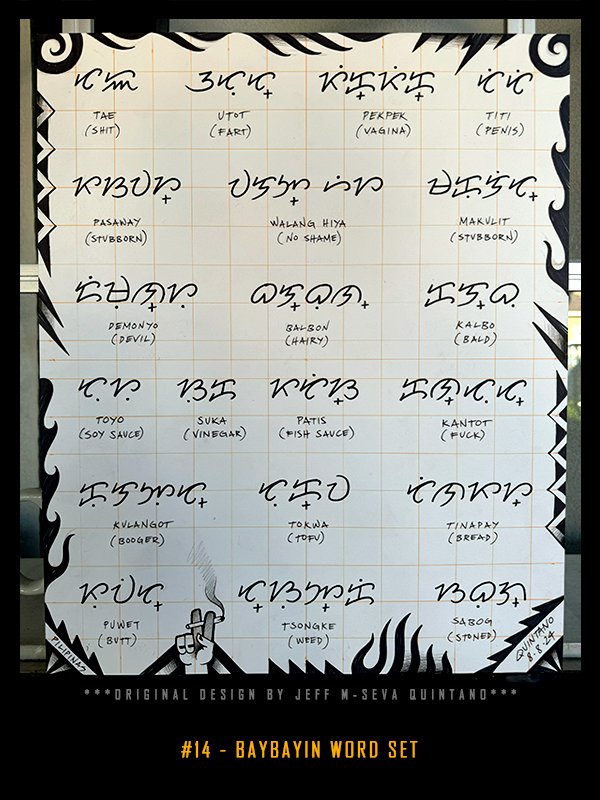 ᜆᜁ ᜂᜆᜓᜆ᜔ ᜉᜒᜃ᜔ᜉᜒᜃ᜔ ᜆᜒᜆᜒ
TAE UTOT PEKPEK TITI
(SHIT) (FART) (VAGINA) (PENIS)
ᜉᜐᜏᜌ᜔ ᜏᜎᜅ᜔ ᜑᜒᜌ ᜋᜃᜓᜎᜒᜆ᜔
PASAWAY WALANG HIYA MAKULIT
(STUBBORN) (NO SHAME) (STUBBORN)
ᜇᜒᜋᜓᜈ᜔ᜌᜓ ᜊᜎ᜔ᜊᜓᜈ᜔ ᜃᜎ᜔ᜊᜓ
DEMONYO BALBON KALBO
(DEVIL) (HAIRY) (BALD)
ᜆᜓᜌᜓ ᜐᜓᜃ ᜉᜆᜒᜐ᜔ ᜃᜈ᜔ᜆᜓᜆ᜔
TOYO SUKA PATIS KANTOT
(SOY SAUCE) (VINEGAR) (FISH SAUCE) (FUCK)
ᜃᜓᜎᜅᜓᜆ᜔ ᜆᜓᜃ᜔ᜏ ᜆᜒᜈᜉᜌ᜔
KULANGOT TOKWA TINAPAY
(BOOGER) (TOFU) (BREAD)
ᜉᜓᜏᜒᜆ᜔ ᜆ᜔ᜐᜓᜅ᜔ᜃᜒ ᜐᜊᜓᜄ᜔
PUWET TSONGKE SABOG
(BUTT) (WEED) (STONED)
PILIPINAS
QUINTANO
8-8-24
***ORIGINAL DESIGN BY JEFF M-SEVA QUINTANO***
#14 - BAYBAYIN WORD SET